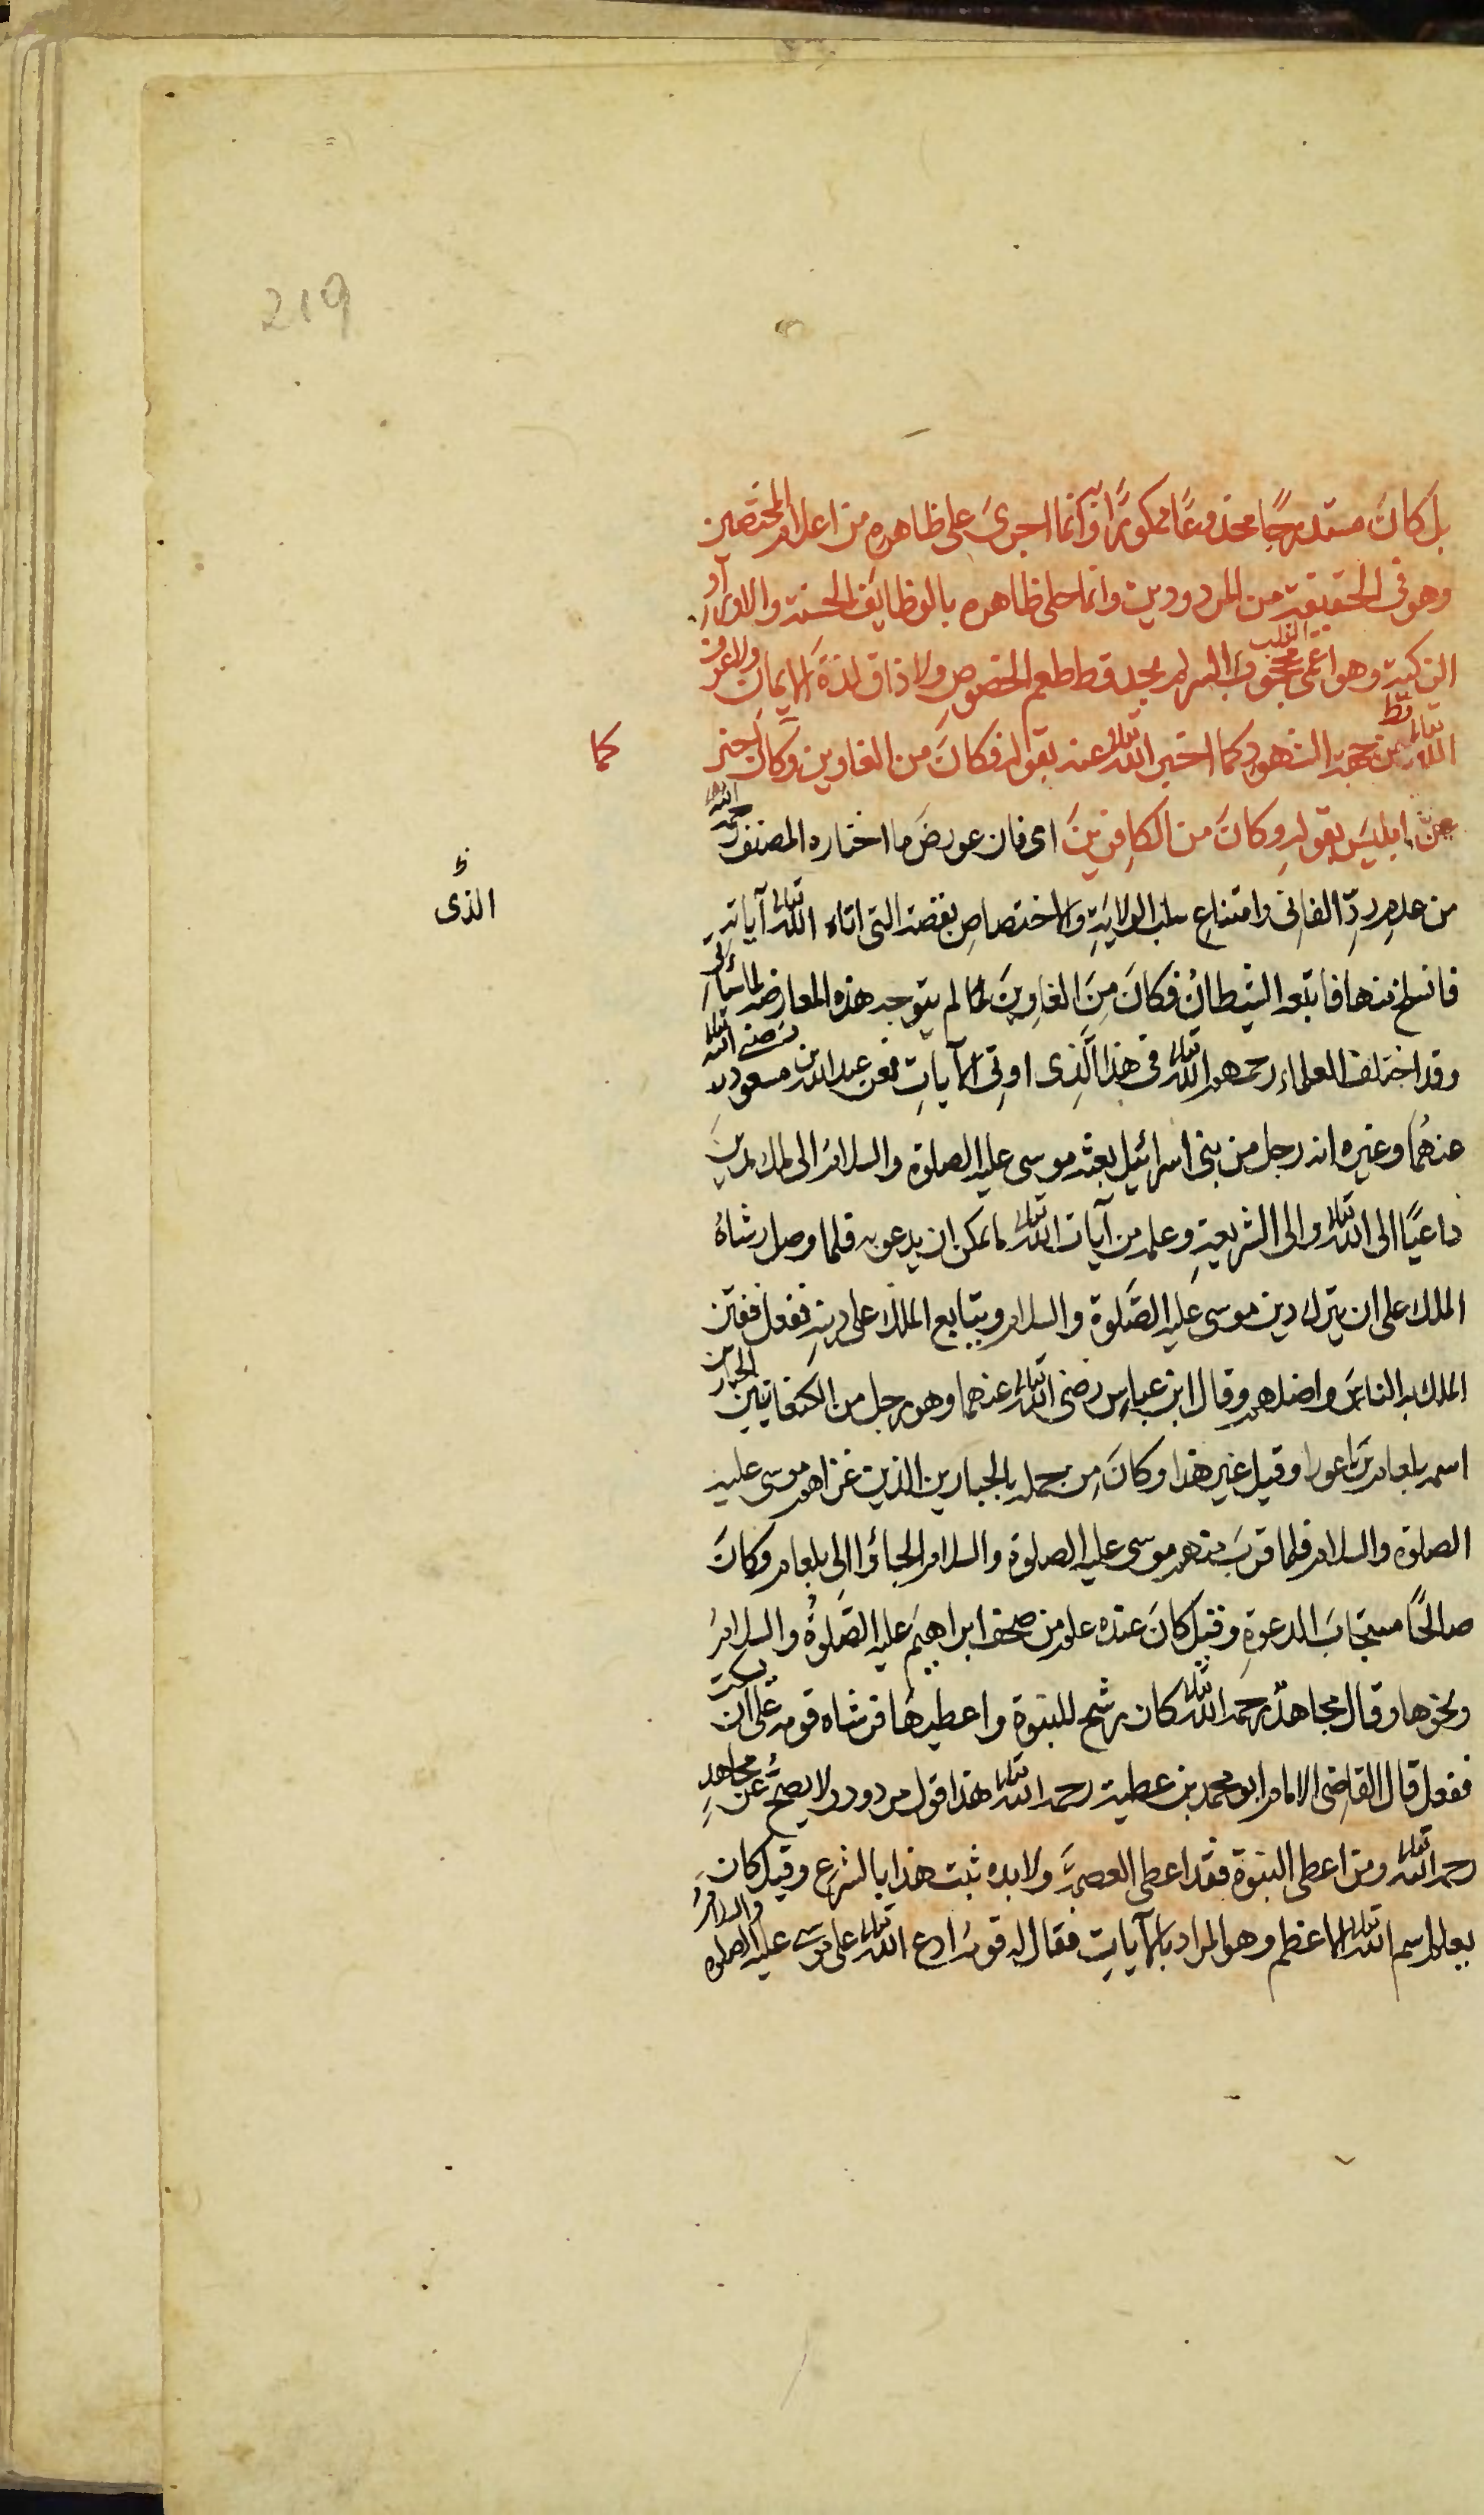 219
بل كانَ مستدرجًا مخذوعًا ممكورًا به وانما اجرىَ على ظاهره من اعلام المختصين
وهو فى الحقيقة من المردودين وانما حلى ظاهره بالوظايف الحسنة والاوراد
الزكية وهو اعمى القلب محجوب السر لم يجد قط طعم الخصوصِ ولا ذاق لذةَ الايمانِ ولا عرف
الله تعالى قط من جهة الشهود كما اخبر الله تعالى عنه بقوله فكانَ من الغاوين وكما اخبر
كما
عن ابليسَ بقوله وكانَ من الكافرينَ اى فان عورضَ ما اختاره المصنف رحمه الله
من عدمِ ردّ الفانِى وامتناعِ سلب الولايةِ والاختصاصِ بقصة التى اتاه الله تعالى آياتهِ
الذى
فانسلخ منها فاتبعه الشيطانُ فكانَ مِنَ الغاوِينَ لما لم يتوجه هذه المعارضة لما سيأتى
وقد اختلف العلماء رحمهم الله تعالى فى هذا الَّذِى اوتِىَ الآياتِ فعن عبد الله بن مسعود رضى الله تعالى
عنهُما وغيره انه رجل من بنى اسرائيل بعثه موسى عليه الصلوة والسلامُ الى ملك مدينَ
داعيًا الى الله تعالى والى الشريعةِ وعلمه من آيات الله تعالى ما يمكن ان يدعو به فلما وصل رشاهُ
الملك على ان يترك دين موسى عليه الصَّلوة والسلام ويتابع الملك على دينهِ ففعل ففتن
الملك به الناسَ واضلهم وقال ابن عباسٍ رضى الله تعالى عنهما وهو رجل من الكنعانيين الجبارين
اسمه بلعام بن باعورا وقيل غير هذا وكانَ مِن جملة الجبارين الذين غزاهم موسى عليه
الصلوة والسلام فلما قربَ منهم موسى عليه الصلوة والسلام لجاؤا الى بلعام وكانَ
صالحًا مستجابَ الدعوةِ وقيلَ كانَ عنده علم من صحف ابراهيمَ عليه الصَّلوةُ والسلامُ
ونحوها وقال مجاهدٌ رحمه الله تعالى كان رشح للنبوة واعطيهَا فرشاه قومه على ان يسكت
ففعل قال القاضِى الامام ابو محمد بن عطية رحمه الله تعالى هذا قول مردود لا يصحُّ عَن مجاهدٍ
رحمه الله تعالى ومن اعطى النبوة فقد اعطى العصمة ولا بده ثبت هذا بالشرعِ وقيل كان
يعلم اسم الله تعالى الاعظم وهو المراد بالآياتِ فقال له قومهُ ادع الله تعالى على موسى عليه الصلوه والسلامُ